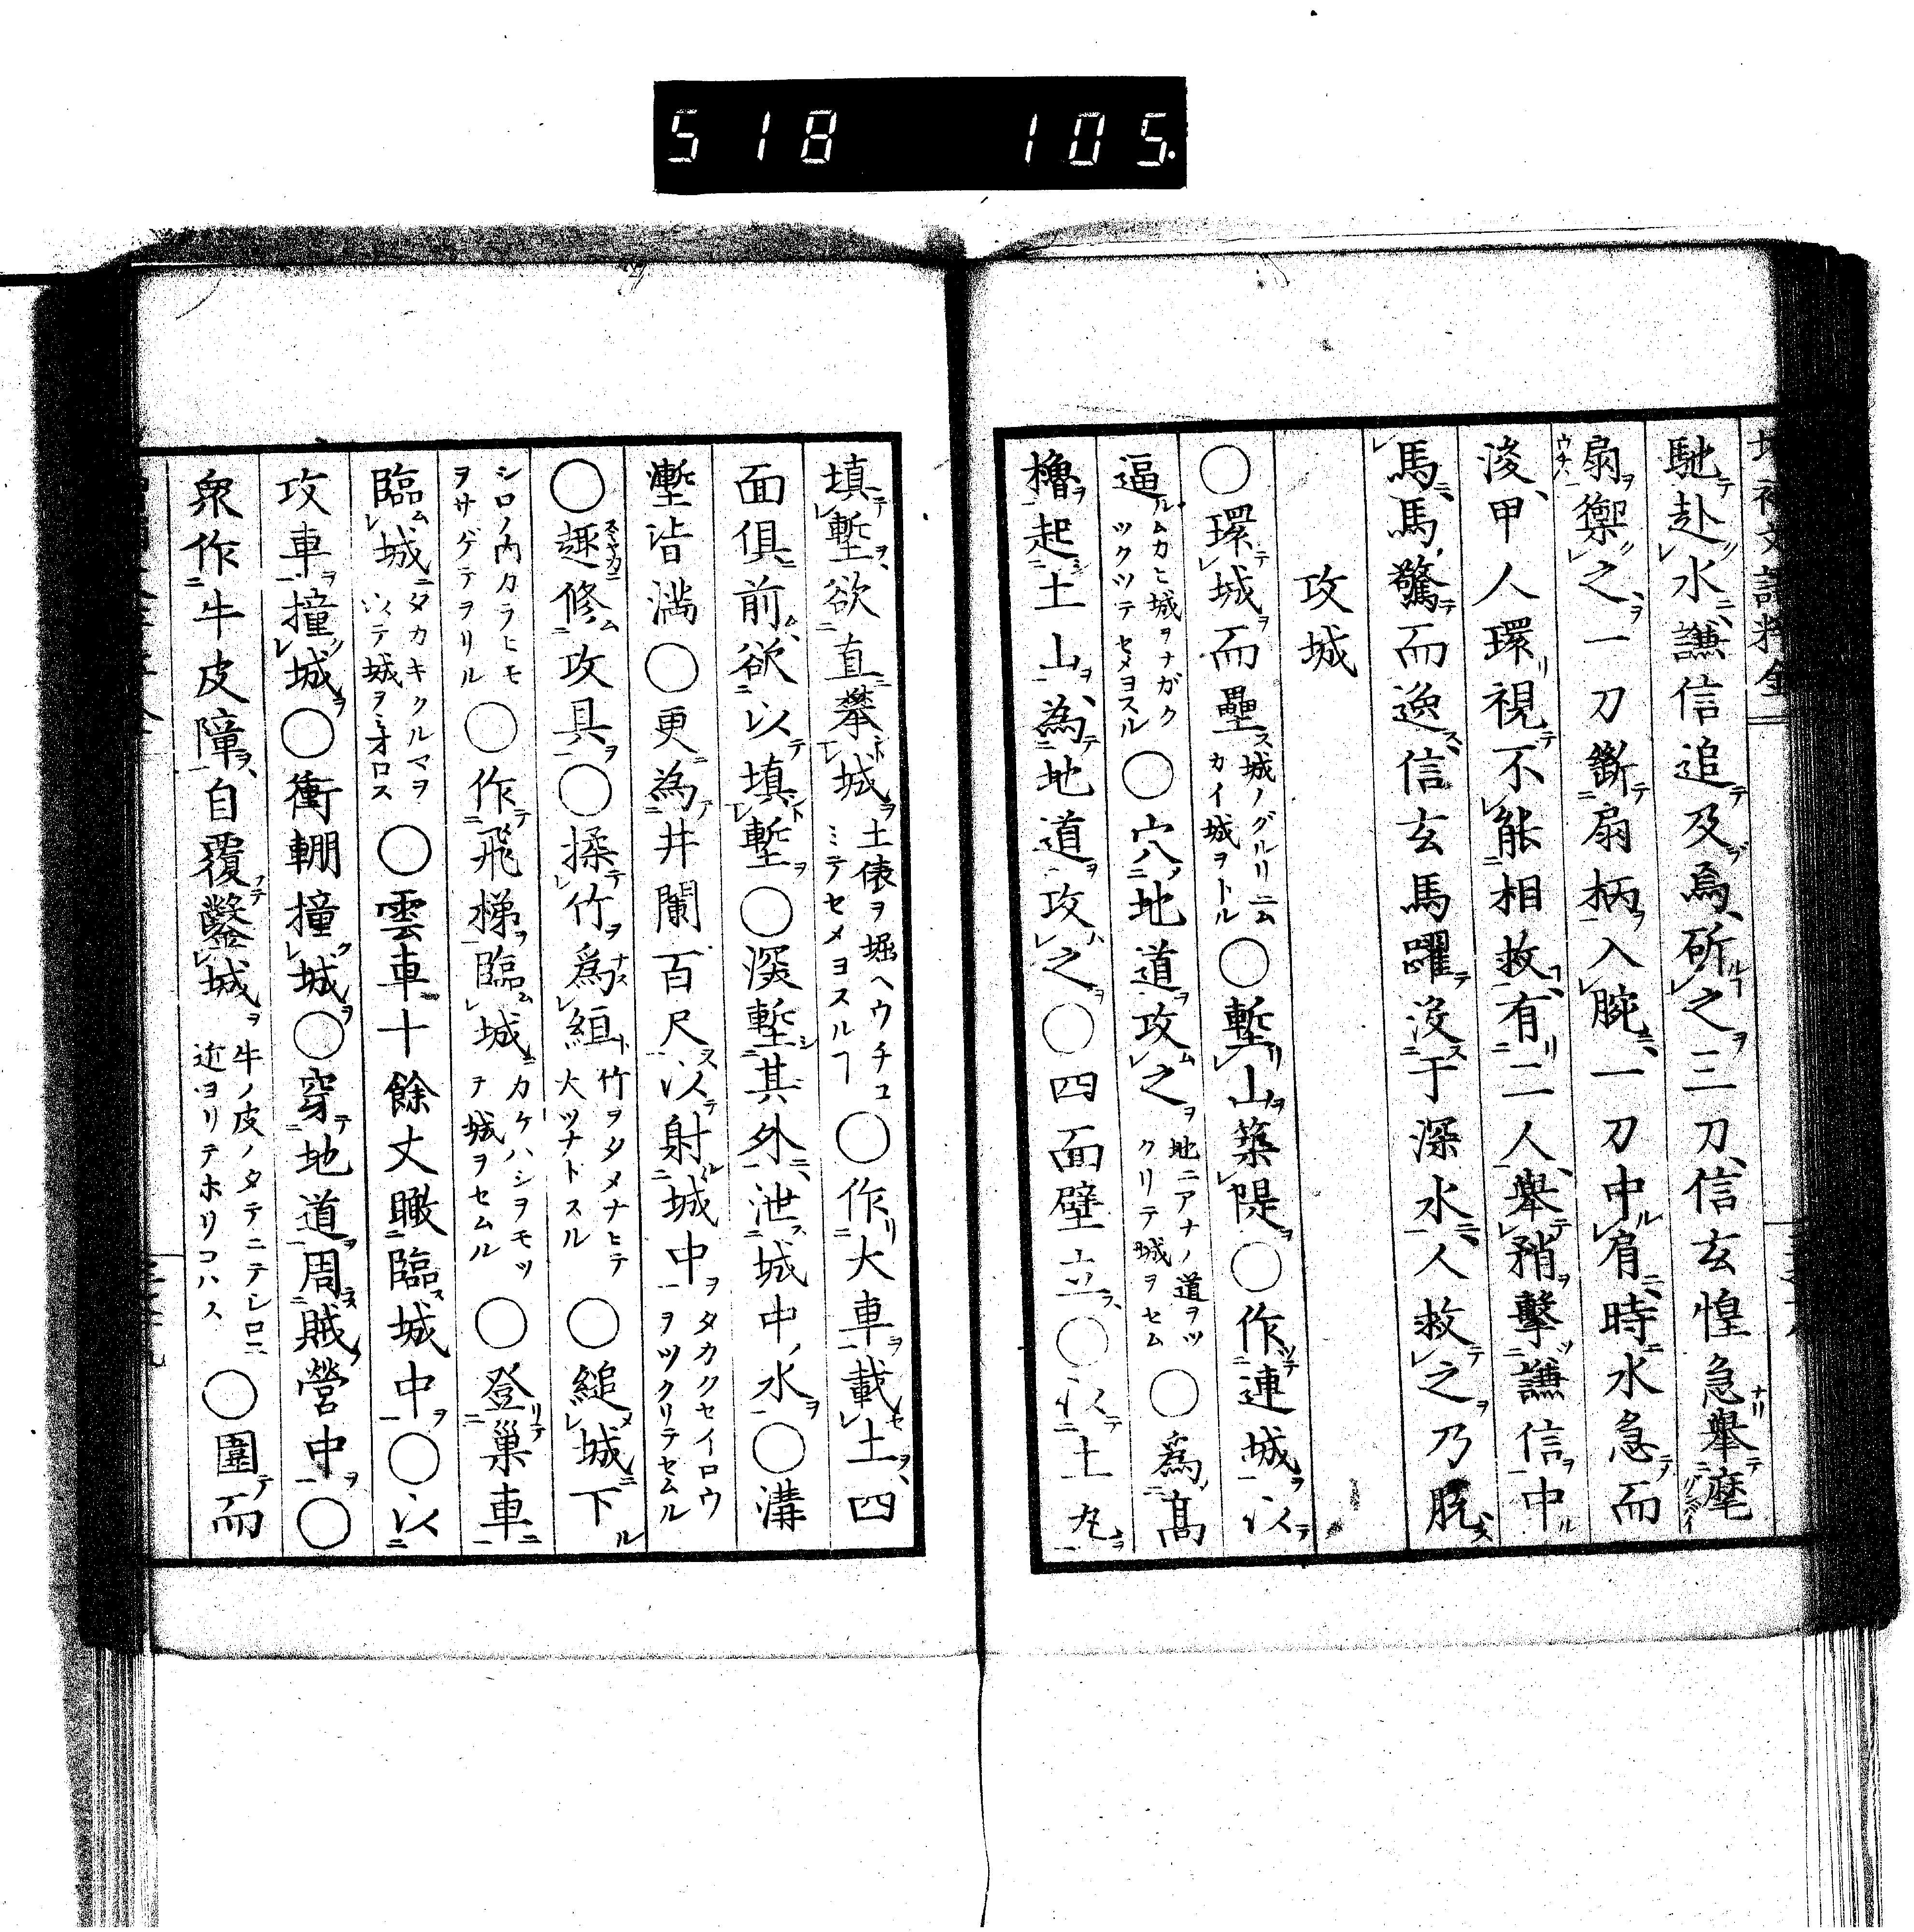 518 105.
馳赴水謙信追及焉斫之三刀信玄惶急舉麾
扇禦之一刀斷扇柄入腕一刀中肩時水急而
浚甲人環視不能相救有二人舉矟擊謙信中
馬馬驚而逸信玄馬躍沒于深水人救之乃脫
攻城
○環城而壘城ノグルリニムカイ城ヲトル○塹山築隄○作連城以
逼ムカヒ城ヲナガクツクツテセメヨスル○穴地道攻之地ニアナノ道ヲツクリテ城ヲセム○爲髙
櫓起土山為地道攻之○四面壁立○以土丸
填塹欲直攀城土俵ヲ堀ヘウチコミテセメヨスルヿ○作大車載土四
面俱前欲以填塹○深塹其外泄城中水○溝
塹皆滿○更為井闌百尺以射城中タカクセイロウヲツクリテセムル
○趣修攻具○揉竹爲絙竹ヲタメナヒテ大ツナトスル○縋城下
シロノ内カラヒモヲサゲテヲリル○作飛梯臨城カケハシヲモツテ城ヲセムル○登巢車
臨城タカキクルマヲ以テ城ヲミオロス○雲車十餘丈瞰臨城中○以
攻車撞城○衝輣撞城○穿地道周賊營中○
衆作牛皮障自覆鑿城牛ノ皮ノタテニテシロニ近ヨリテホリコハス○圍而